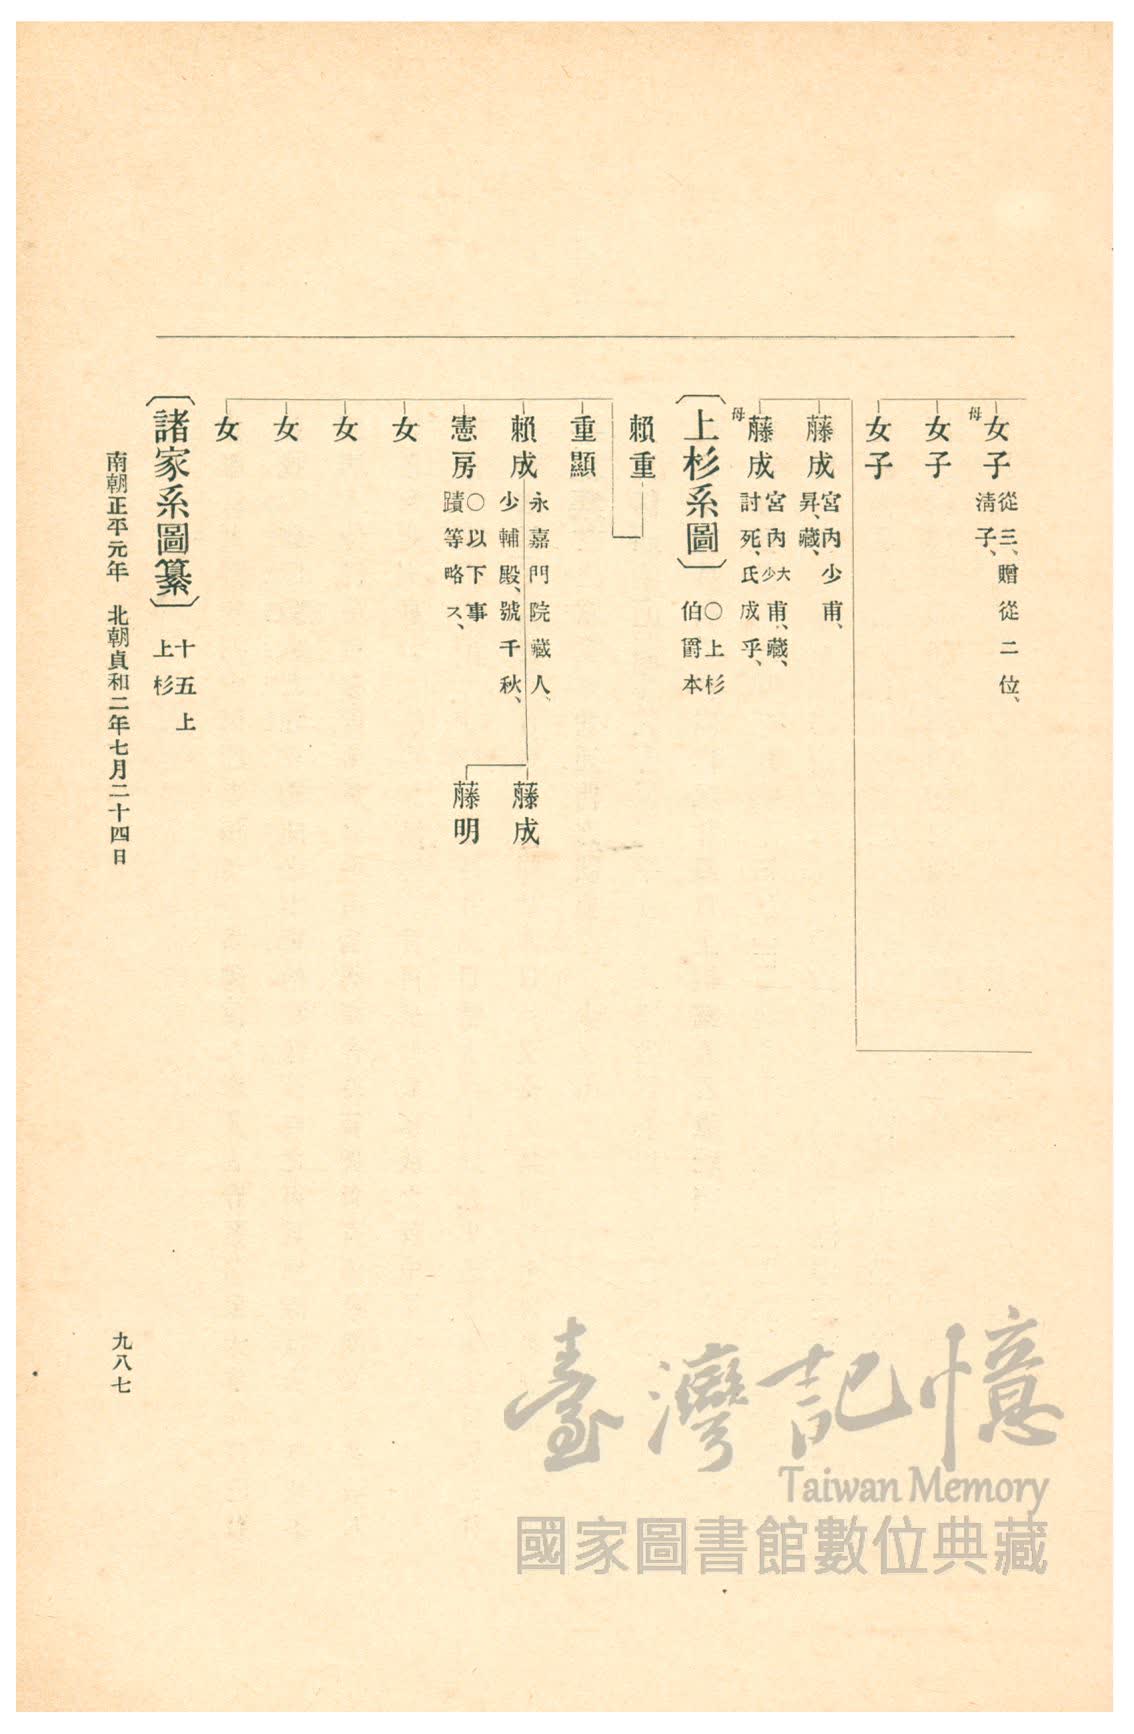 母
女子
從三、贈從二位、
淸子、
女子
女子
藤成
宮內少甫、
昇、藏、
母
藤成
宮內大少甫、藏、
討死、氏成乎、
〔上杉系圖〕
○上杉
伯爵本
賴重
重顯
賴成
永嘉門院藏人、
少輔殿、號千秋、
藤成
藤明
憲房
○以下事
蹟等略ス、
女
女
女
女
〔諸家系圖纂〕
十五上
上杉
南朝正平元年 北朝貞和二年七月二十四日
九八七
臺灣記憶
Taiwan Memory
國家圖書館數位典藏